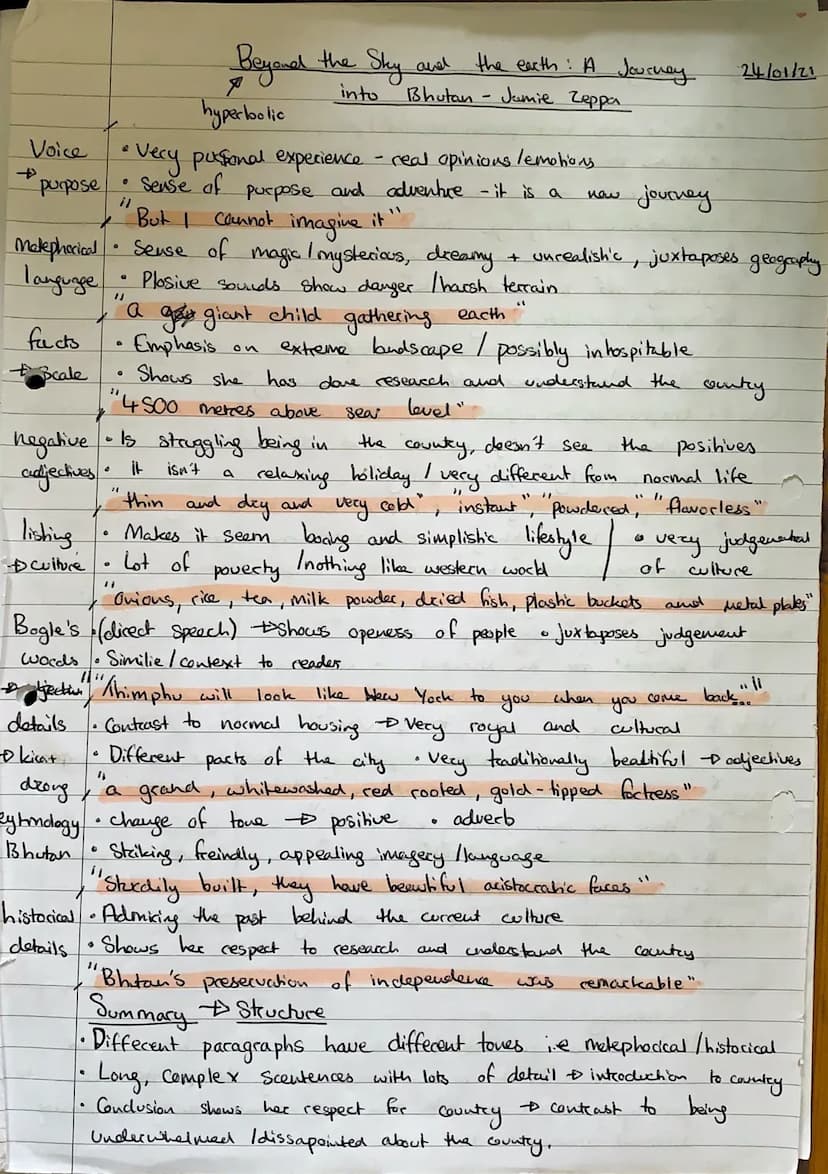 Beyond the Sky and the earth : A Journey 24/01/21
into Bhutan - Jamie Zeppa
hyperbolic
Voice • Very personal experience - real opinions/emotions
→ purpose • Sense of purpose and adventure - it is a new journey
"But I cannot imagine it"
Metephorical • Sense of magic/mysterious, dreamy + unrealistic, juxtaposes geography
language • Plosive sounds show danger /harsh terrain
"a giant child gathering earth"
facts • Emphasis on extreme landscape / possibly inhospitable
→ Scale • Shows she has done research and understand the country
"4500 metres above sear level"
negative • Is struggling being in the country, doesn't see the positives
adjectives • it isn't a relaxing holiday / very different from normal life
"thin and dry and very cold", "instant", "powdered," "flavorless"
listing • Makes it seem boring and simplistic lifestyle / • very judgemental
→ culture • Lot of poverty /nothing like western world / of culture
"Onions, rice, tea, milk powder, dried fish, plastic buckets and metal plates"
Bogle's • (direct speech) → shows openess of people • juxtaposes judgement
words • Similie / context to reader
""Thimphu will look like New York to you when you come back...""
details • Contrast to normal housing → Very royal and cultural
→ • Different parts of the city • Very traditionally beautiful → adjectives
dzong "a grand, whitewashed, red rooted, gold-tipped fortress"
eytmology • change of tone → positive • adverb
Bhutan • Striking, freindly, appealing imagery /language
"Sturdily built, they have beautiful aristocratic faces"
historical • Admiring the past behind the current culture
details • Shows her respect to research and understand the country
"Bhutan's preservation of independence was remarkable"
Summary → Structure
• Different paragraphs have different tones i.e metephorical /historical
• Long, complex scentences with lots of detail → introduction to country
• Conclusion shows her respect for country → contrast to being
underwhelmed /dissapointed about the country.